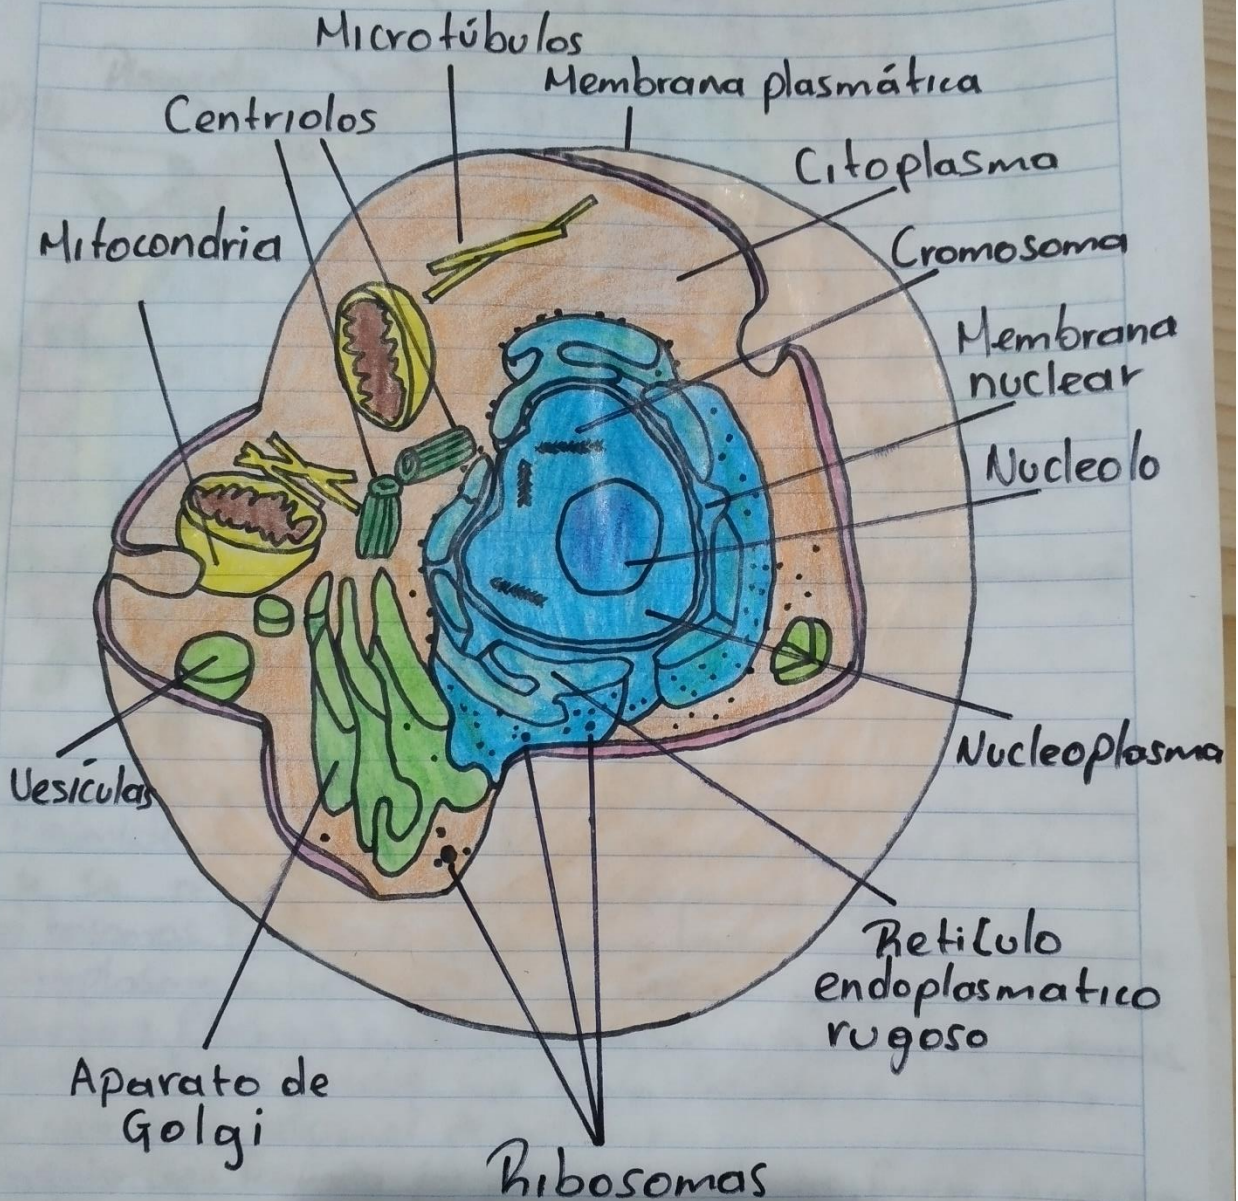 Microtúbulos
Membrana plasmática
Centriolos
Citoplasma
Mitocondria
Cromosoma
Membrana
nuclear
Nucleolo
Nucleoplasma
Vesículas
Retículo
endoplasmatico
rugoso
Aparato de
Golgi
Ribosomas